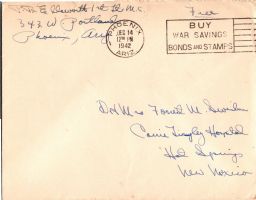 Ellsworth 1st Lt. M.C.
343 W Portland
Phoenix, Ariz
Free
PHOENIX
DEC 14
12 PM
1942
ARIZ.
BUY
WAR SAVINGS
BONDS AND STAMPS
Mrs M.
Carrie Tingley Hospital
Hot Springs
New Mexico